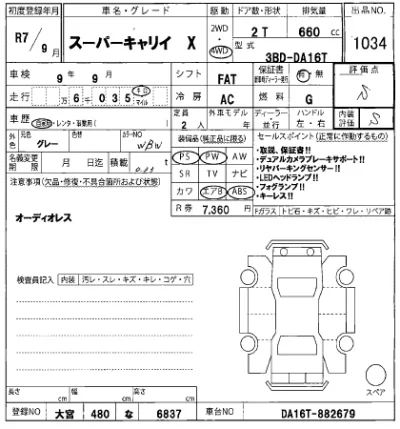 初度登録年月 車名・グレード 駆動 ドア数・形状 排気量 出品NO.
R7/9月 スーパーキャリイ X 2WD 4WD 2T 660cc 1034
型式 3BD-DA16T
車検 9年 9月 シフト FAT 保証書 有・無 評価点
走行 万6千035 キロ マイル 冷房 AC 燃料 G S
車歴 自家用・レンタ・営業用( ) 定員 2人 外車モデル 年 ディーラー 並行 ハンドル 左・右 内装評価 S
外色 元色 グレー 色替 カラーNO WBW 装備品(純正品に限る) セールスポイント(正常に作動するもの)
名義変更期限 月 日迄 積載 t PS PW AW ・取説、保証書!!
・デュアルカメラブレーキサポート!!
注意事項(欠品・修復・不具合箇所および状態) SR TV ナビ ・リヤパーキングセンサー!!
・LEDヘッドランプ!!
カワ エアB ABS ・フォグランプ!!
・キーレス!!
オーディオレス R券 7,360円 Fガラス トビ石・キズ・ヒビ・ワレ・リペア跡
検査員記入 内装 汚レ・スレ・キズ・キレ・コゲ・穴
スペア
長さ cm 幅 cm 高さ cm
登録NO 大宮 480 な 6837 車台NO DA16T-882679